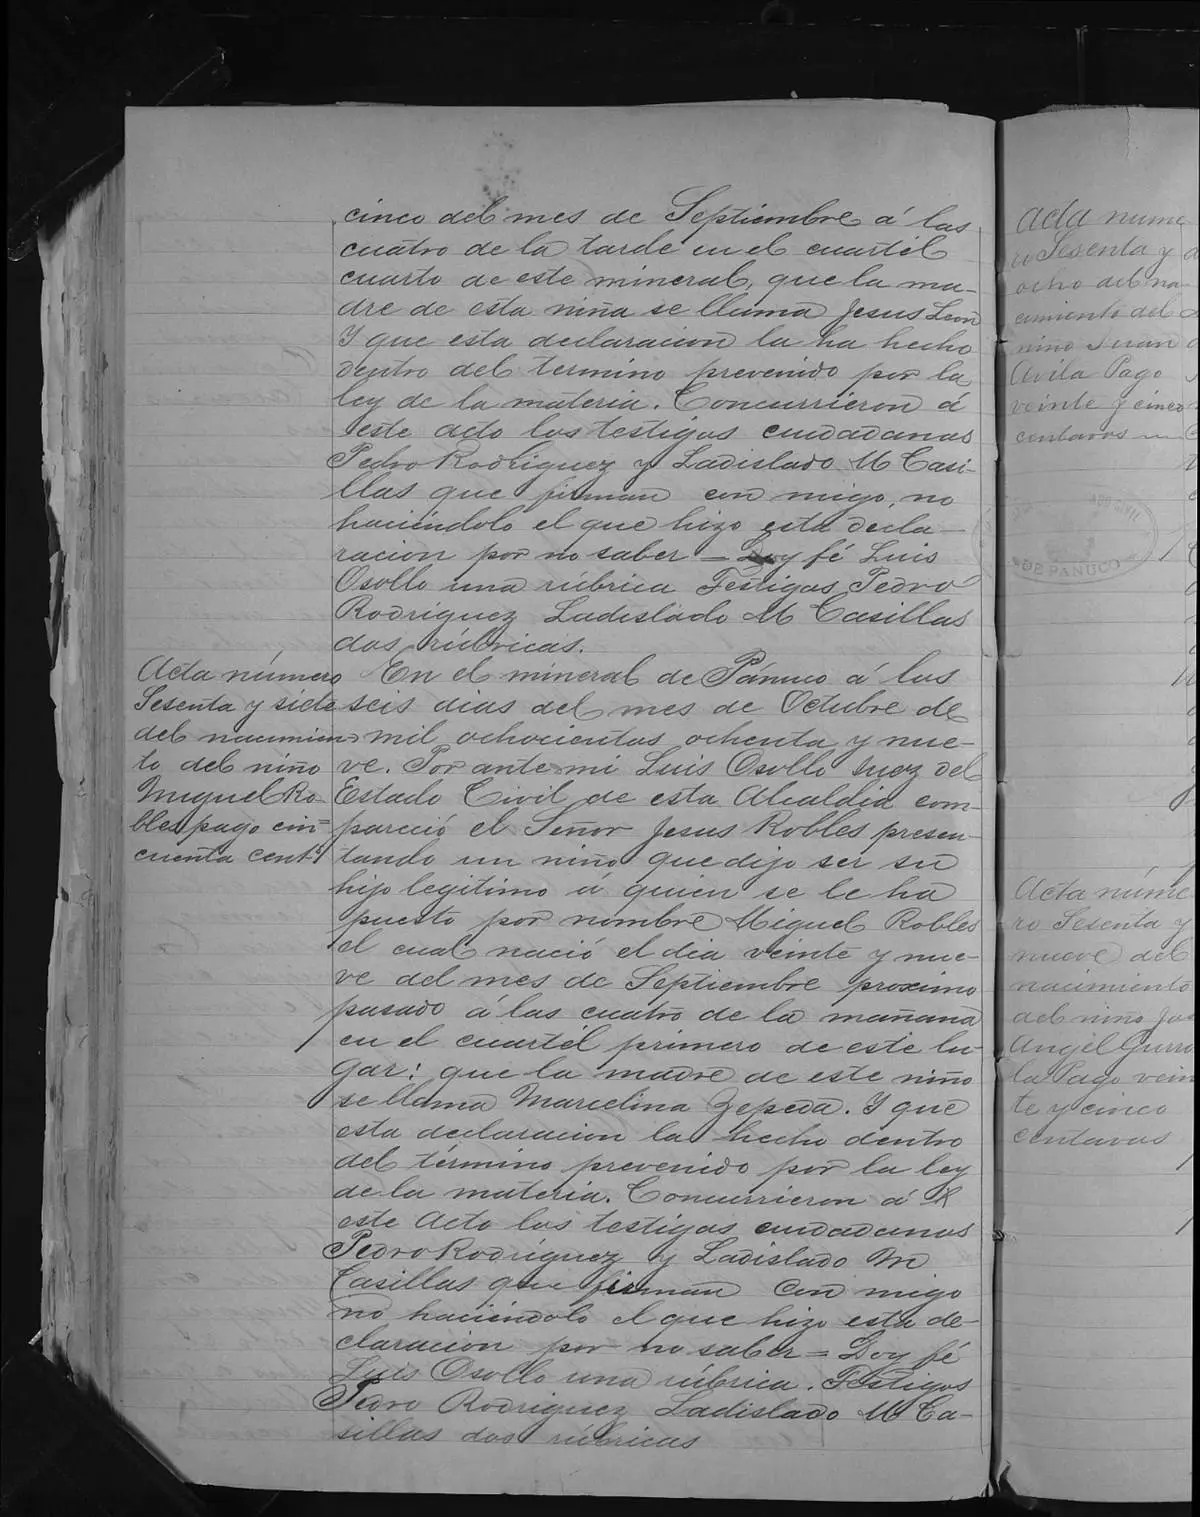 cinco del mes de Septiembre á las
cuatro de la tarde en el cuartél
cuarto de este mineral, que la ma-
dre de esta niña se llama Jesus Leon
Y que esta declaracion la ha hecho
dentro del termino prevenido por la
ley de la materia. Concurrieron á
este acto los testigos ciudadanos
Pedro Rodriguez y Ladislado M Casi-
llas que firman con migo, no
haciéndolo el que hizo esta decla-
racion por no saber = Doy fé Luis
Osollo una rúbrica Testigos Pedro
Rodriguez Ladislado M Casillas
dos rúbricas.
Acta número
Sesenta y siete
del nacimien
to del niño
Miguel Ro
bles pago cin=
cuenta cent.
En el mineral de Pánuco á los
seis dias del mes de Octubre de
mil ochocientos ochenta y nue-
ve. Por ante mi Luis Osollo Juez del
Estado Civil de esta Alcaldia com-
pareció el Señor Jesus Robles presen-
tando un niño que dijo ser su
hijo legitimo á quien se le ha
puesto por nombre Miguel Robles
el cual nació el dia veinte y nue-
ve del mes de Septiembre proximo
pasado á las cuatro de la mañana
en el cuartél primero de este lu-
gar: que la madre de este niño
se llama Marcelina Zepeda. Y que
esta declaracion la hecho dentro
del término prevenido por la ley
de la materia. Concurrieron á
este Acto los testigos ciudadanos
Pedro Rodriguez y Ladislado M
Casillas que firman con migo
no haciéndolo el que hizo esta de-
claracion por no saber = Doy fé
Luis Osollo una rúbrica. Téstigos
Pedro Rodriguez Ladislado M Ca-
sillas dos rúbricas
Acta nume
ro Sesenta y
ocho del na
cimiento del
niño Juan
Avila Pago
veinte y cinco
centavos
DE PANUCO
Acta núme
ro Sesenta y
nueve del
nacimiento
del niño Jo
Angel Gurro
la Pago vein
te y cinco
centavos